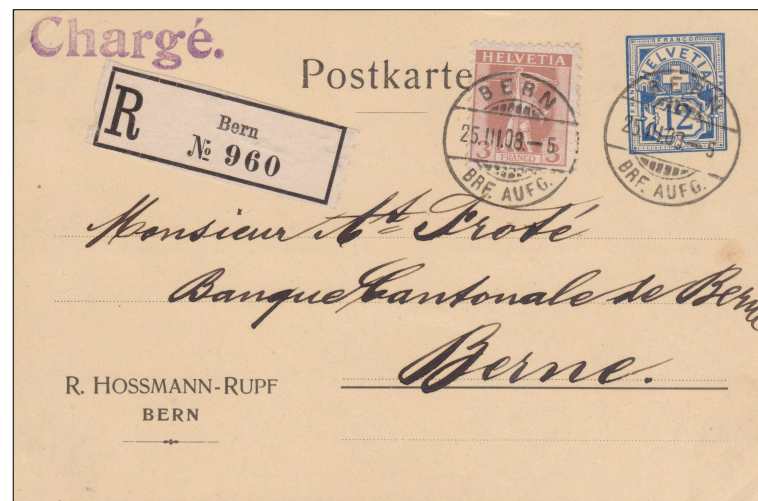 Chargé.
Postkarte
R
Bern
№ 960
HELVETIA
3 3
FRANCO
BERN
25.III.08.–5
BRF. AUFG.
FRANCO
HELVETIA
12
BRF. AUFG.
Monsieur At. Froté
Banque Cantonale de Berne
Berne.
R. HOSSMANN-RUPF
BERN